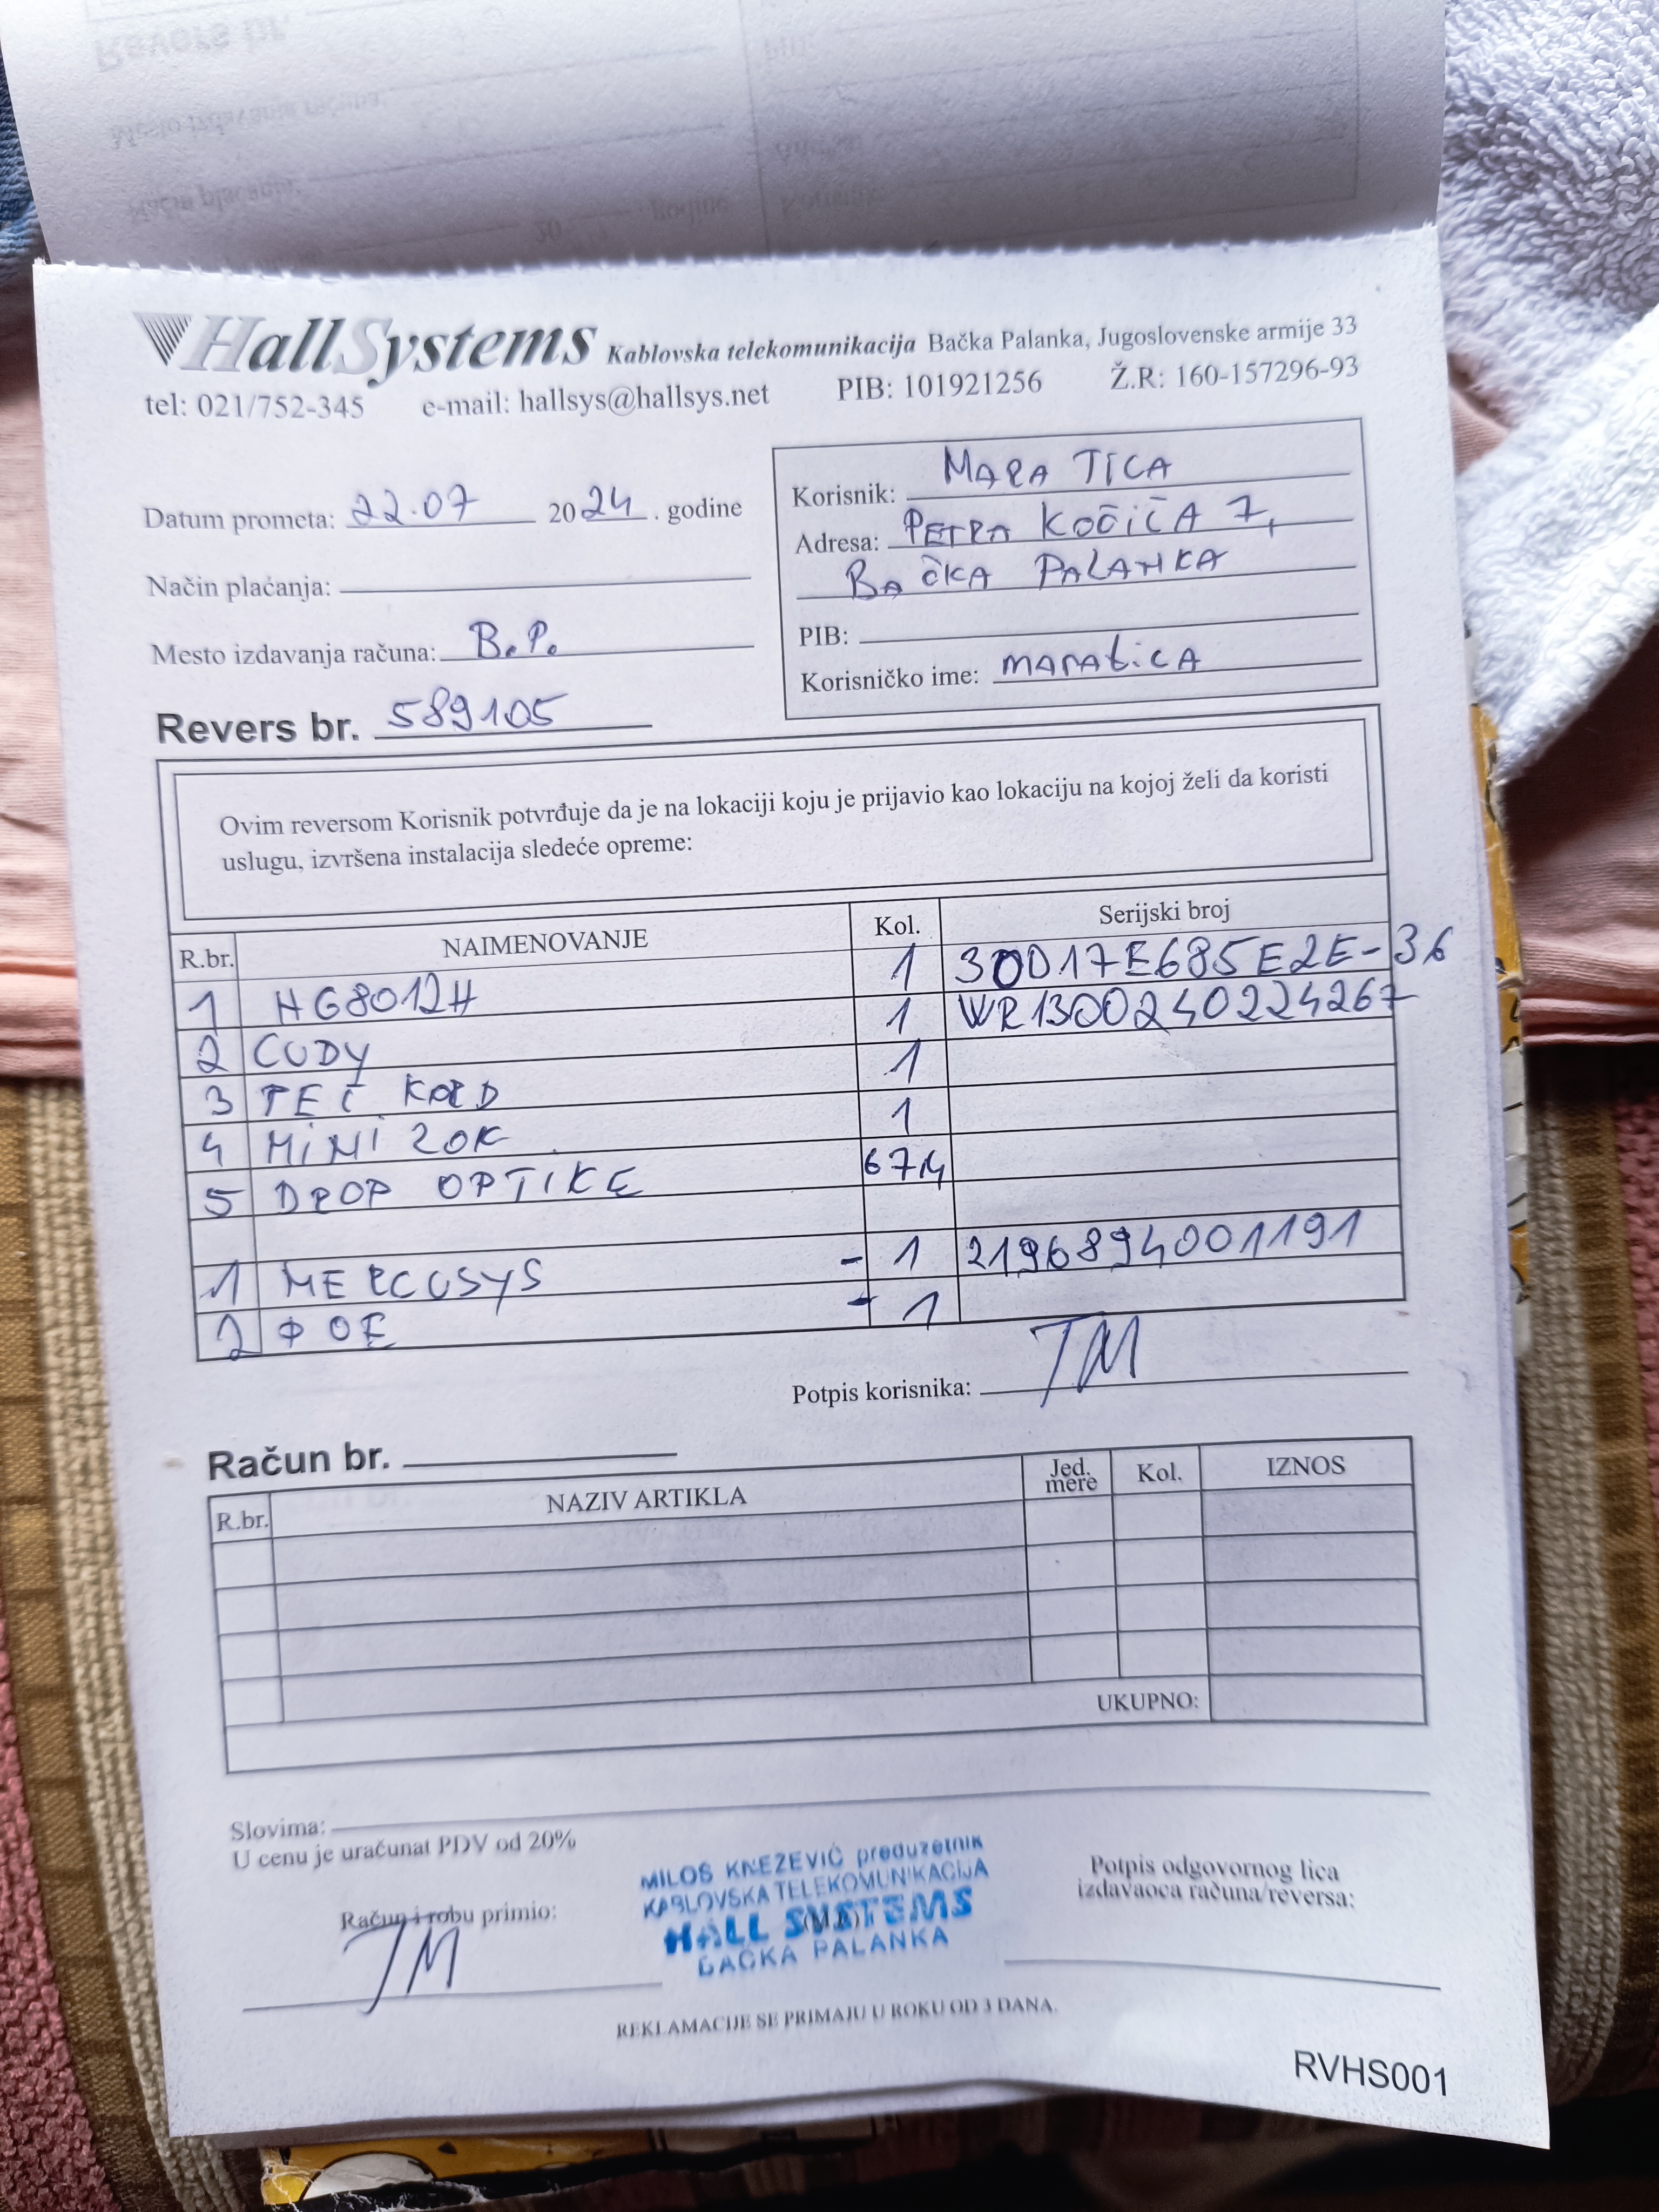 HallSystems Kablovska telekomunikacija Bačka Palanka, Jugoslovenske armije 33
tel: 021/752-345 e-mail: hallsys@hallsys.net PIB: 101921256 Ž.R: 160-157296-93
Datum prometa: 22.07 2024. godine
Način plaćanja:
Mesto izdavanja računa: B.P.
Revers br. 589105
Korisnik: MARA TICA
Adresa: PETRA KOČIĆA 7,
BAČKA PALANKA
PIB:
Korisničko ime: maratica
Ovim reversom Korisnik potvrđuje da je na lokaciji koju je prijavio kao lokaciju na kojoj želi da koristi
uslugu, izvršena instalacija sledeće opreme:
R.br. NAIMENOVANJE Kol. Serijski broj
1 HG8012H 1 30D17E685E2E-36
2 CUDY 1 WR1300240224267
3 PEČ KORD 1
4 MINI ZOK 1
5 DROP OPTIKE 67M
1 MERCUSYS - 1 2196894001191
2 POE - 1
Potpis korisnika: TM
Račun br.
R.br. NAZIV ARTIKLA Jed. mere Kol. IZNOS
UKUPNO:
Slovima:
U cenu je uračunat PDV od 20%
Račun i robu primio:
TM
MILOŠ KNEŽEVIĆ preduzetnik
KABLOVSKA TELEKOMUNIKACIJA
HALL SYSTEMS
BAČKA PALANKA
Potpis odgovornog lica
izdavaoca računa/reversa:
REKLAMACIJE SE PRIMAJU U ROKU OD 3 DANA.
RVHS001